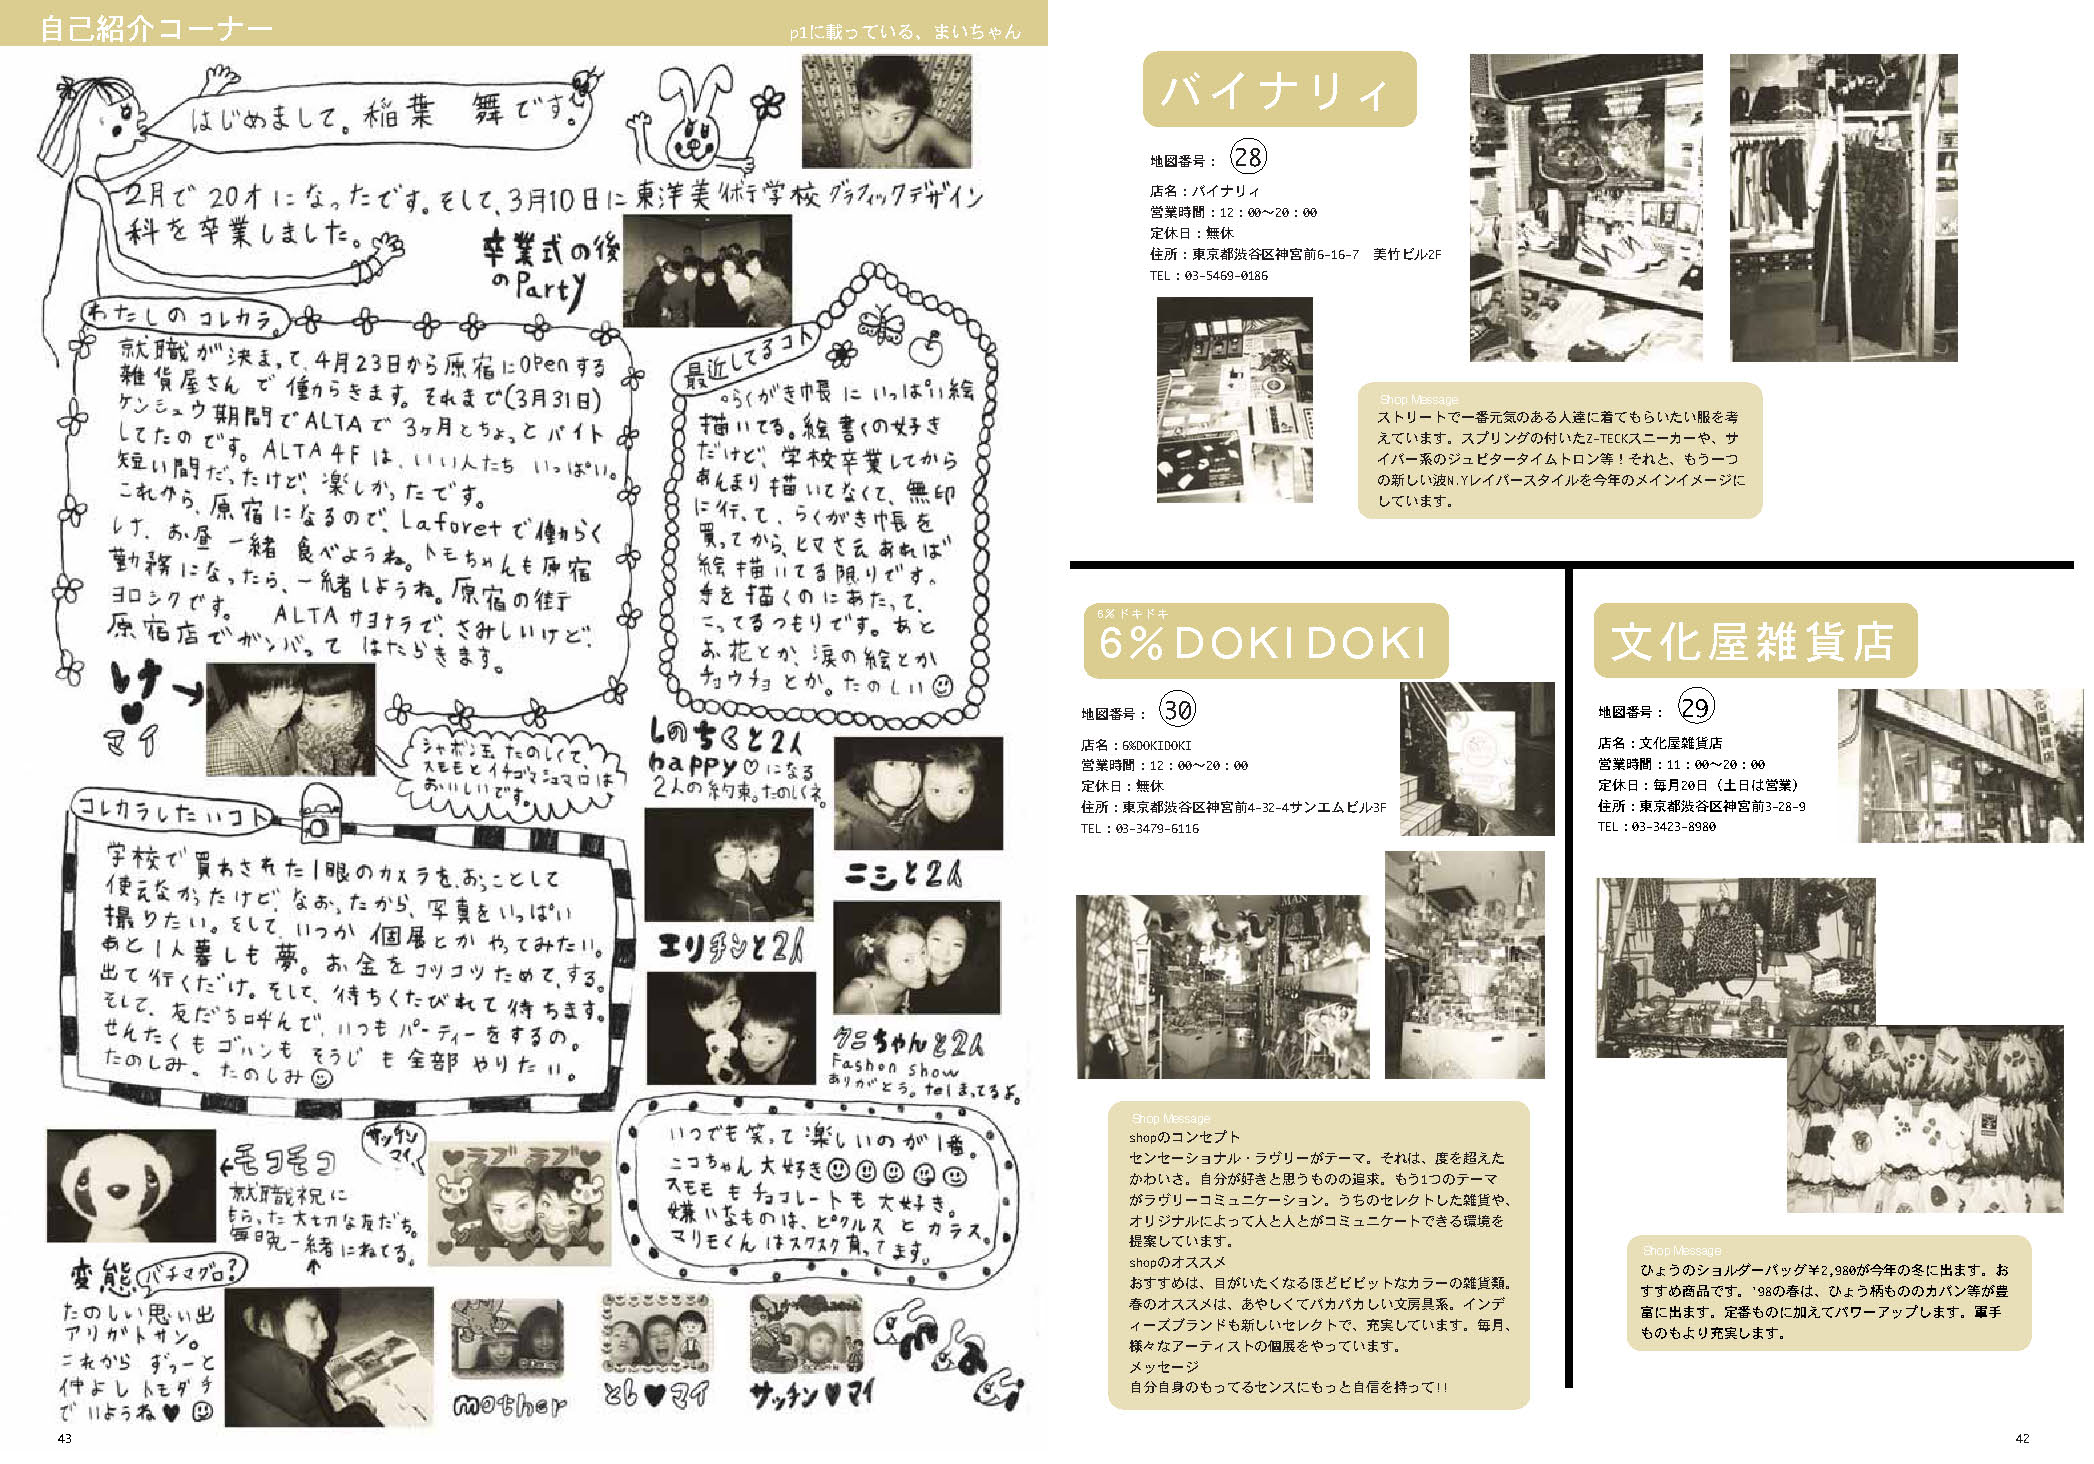 自己紹介コーナー
p1に載っている、まいちゃん
はじめまして。稲葉 舞です!
2月で20才になったです。そして、3月10日に東洋美術学校グラフィックデザイン
科を卒業しました。
卒業式の後
のParty
わたしのコレカラ。
就職が決まって、4月23日から原宿にOPenする
雑貨屋さんで働らきます。それまで(3月31日)
ケンシュウ期間でALTAで3ヶ月とちょっとバイト
してたのです。ALTA4Fは、いい人たちいっぱい。
短い間だったけど、楽しかったです。
これから、原宿になるので、Laforetで働らく
しけ、お昼一緒食べようね。トモちゃんも原宿
勤務になったら、一緒しようね。原宿の街
ヨロシクです。 ALTAサヨナラで、さみしいけど、
原宿店でガンバって はたらきます。
しけ→
♥
マイ
シャボン玉たのしくて、
スモモとイチゴマシュマロは
おいしいです。
最近してるコト
らくがき帳にいっぱい絵
描いてる。絵書くの好き
だけど、学校卒業してから
あんまり描いてなくて、無印
に行って、らくがき帳を
買ってから、ヒマさえあれば
絵描いてる限りです。
手を描くのにあたって、
こってるつもりです。あと
お花とか、涙の絵とか
チョウチョとか。たのしい☺
しのちくと2人
happy♡になる
2人の約束。たのしくネ。
ニシと2人
エリチンと2人
クミちゃんと2人
Fashon show
ありがとう。telまってるよ。
コレカラしたいコト
学校で買わされた1眼のカメラを、おっことして
使えなかったけど、なおったから、写真をいっぱい
撮りたい。そして、いつか個展とかやってみたい。
あと1人暮しも夢。お金をコツコツためて、する。
出て行くだけ。そして、待ちくたびれて待ちます。
そして、友だち呼んで、いつもパーティーをするの。
せんたくもゴハンもそうじも全部やりたい。
たのしみ。たのしみ☺
←モコモコ
就職祝に
もらった大切な友だち。
毎晩一緒にねてる。
↑
サッチン
マイ
♥ラブラブ♥
いつでも笑って楽しいのが1番。
ニコちゃん大好き☺☺☺☺☺
スモモもチョコレートも大好き。
嫌いなものは、ピクルスとカラス。
マリモくんはスクスク育ってます。
変態
バチマグロ?
たのしい思い出
アリガトサン。
これからずぅーと
仲よしトモダチ
でいようね♥☺
mother
とし♥マイ
サッチン♥マイ
43
バイナリィ
地図番号： 28
店名：バイナリィ
営業時間：12：00〜20：00
定休日：無休
住所：東京都渋谷区神宮前6-16-7 美竹ビル2F
TEL：03-5469-0186
Shop Message
ストリートで一番元気のある人達に着てもらいたい服を考
えています。スプリングの付いたZ-TECKスニーカーや、サ
イバー系のジュピタータイムトロン等！それと、もう一つ
の新しい波N.Yレイバースタイルを今年のメインイメージに
しています。
6%ドキドキ
6%DOKIDOKI
地図番号： 30
店名：6%DOKIDOKI
営業時間：12：00〜20：00
定休日：無休
住所：東京都渋谷区神宮前4-32-4サンエムビル3F
TEL：03-3479-6116
Shop Message
shopのコンセプト
センセーショナル・ラヴリーがテーマ。それは、度を超えた
かわいさ。自分が好きと思うものの追求。もう1つのテーマ
がラヴリーコミュニケーション。うちのセレクトした雑貨や、
オリジナルによって人と人とがコミュニケートできる環境を
提案しています。
shopのオススメ
おすすめは、目がいたくなるほどビビットなカラーの雑貨類。
春のオススメは、あやしくてバカバカしい文房具系。インデ
ィーズブランドも新しいセレクトで、充実しています。毎月、
様々なアーティストの個展をやっています。
メッセージ
自分自身のもってるセンスにもっと自信を持って!!
文化屋雑貨店
地図番号： 29
店名：文化屋雑貨店
営業時間：11：00〜20：00
定休日：毎月20日（土日は営業）
住所：東京都渋谷区神宮前3-28-9
TEL：03-3423-8980
Shop Message
ひょうのショルダーバッグ¥2,980が今年の冬に出ます。お
すすめ商品です。'98の春は、ひょう柄もののカバン等が豊
富に出ます。定番ものに加えてパワーアップします。軍手
ものもより充実します。
42